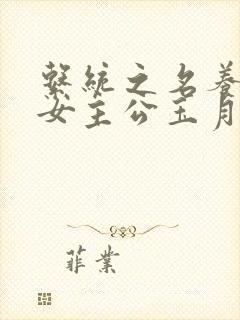 系统之名养
女主公玉月
菲业